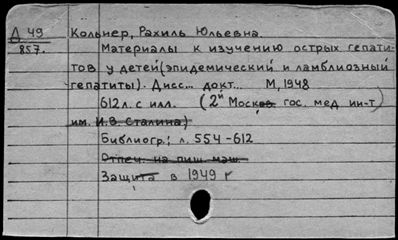 Д 49 Кольнер, Рахиль Юльевна
857. Материалы к изучению острых гепати-
тов у детей (эпидемический и лямблиозный
гепатиты). Дисс... докт... М, 1948
612 л. с илл. (2й Москов. гос. мед ин-т
им. И.В. Сталина)
Библиогр.: л. 554-612
Отпеч. на пиш. маш.
Защита в 1949 г